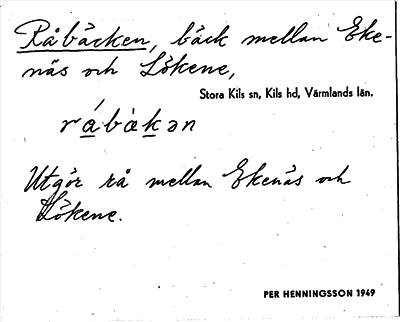 Råbäcken, bäck mellan Eke-
näs och Lökene,
Stora Kils sn, Kils hd, Värmlands län.
rábàkən
Utgör rå mellan Ekenäs och
Lökene.
PER HENNINGSSON 1949